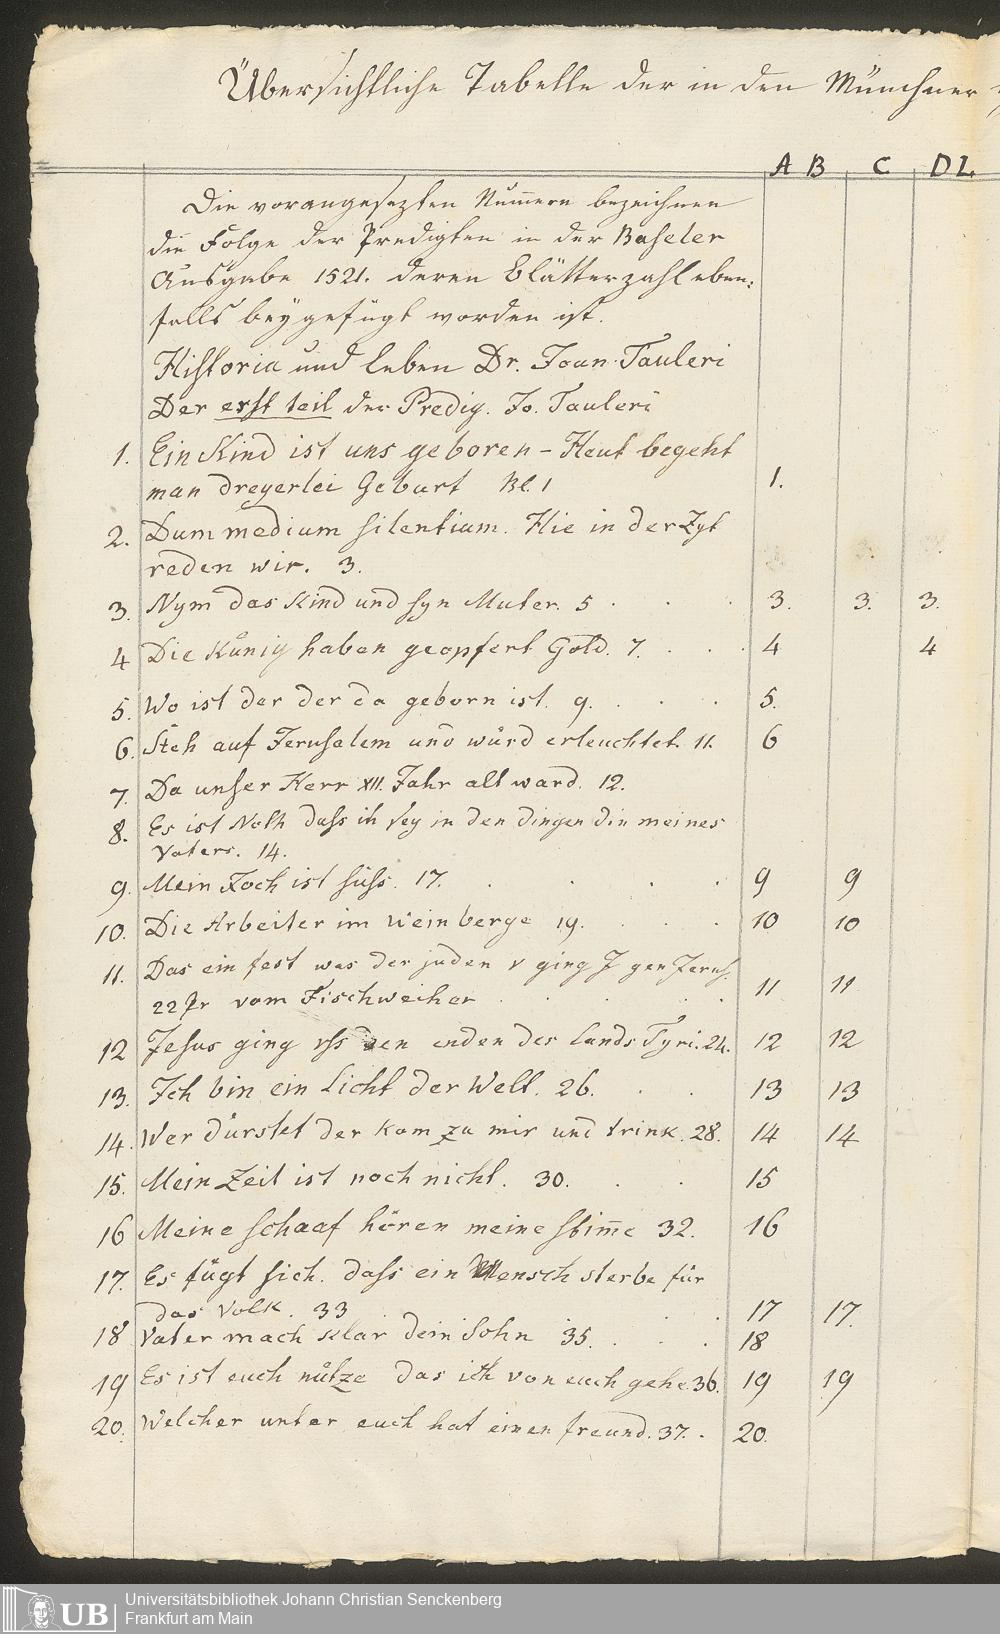 Übersichtliche Tabelle der in den Münchner
A B C D L.
Die vorangesezten Num̄ern bezeichnen
die Folge der Predigten in der Baseler
Ausgabe 1521. deren Blätterzahl eben:
falls beygefügt worden ist.
Historia und leben Dr. Joan Tauleri
Der erst teil der Predig. Jo. Tauleri
1. Ein Kind ist uns geboren – Heut begeht
man dreyerlei Geburt Bl. 1 1.
2. Dum medium silentium. Hie in der Zyt
reden wir. 3.
3. Nym das Kind und syn Muter. 5 . . . 3. 3. 3.
4 Die Kůnig haben geopfert Gold. 7. . . . 4 4
5. Wo ist der der da geborn ist. 9. . . . 5.
6. Steh auf Jerusalem und wůrd erleuchtet. 11. 6
7. Da unser Herr XII. Jahr alt ward. 12.
8. Es ist Noth dass ih sey in den dingen din meines
Vaters. 14.
9. Mein Joch ist süss. 17. . . . . 9 9
10. Die Arbeiter im Weinberge 19. . . . 10 10
11. Das ein fest was der juden v ging J gen Jerus.
22 Pr vom Fischweiher . . . . 11 11
12 Jesus ging vss den enden des lands Tyri. 24. 12 12
13. Ich bin ein Licht der Welt. 26. . . 13 13
14. Wer dürstet der kom zu mir und trink. 28. 14 14
15. Mein Zeit ist noch nicht. 30. . . 15
16 Meine schaaf hören meine stim̄e 32. 16
17. Es fügt sich. dass ein Mensch sterbe für
das Volk. 33 . . . . 17 17.
18 Vater mach klar dein Sohn 35. . . . 18
19 Es ist euch nütze das ich von euch gehe. 36. 19 19
20. Welcher unter euch hat einen freund. 37. . 20.
UB
Universitätsbibliothek Johann Christian Senckenberg
Frankfurt am Main